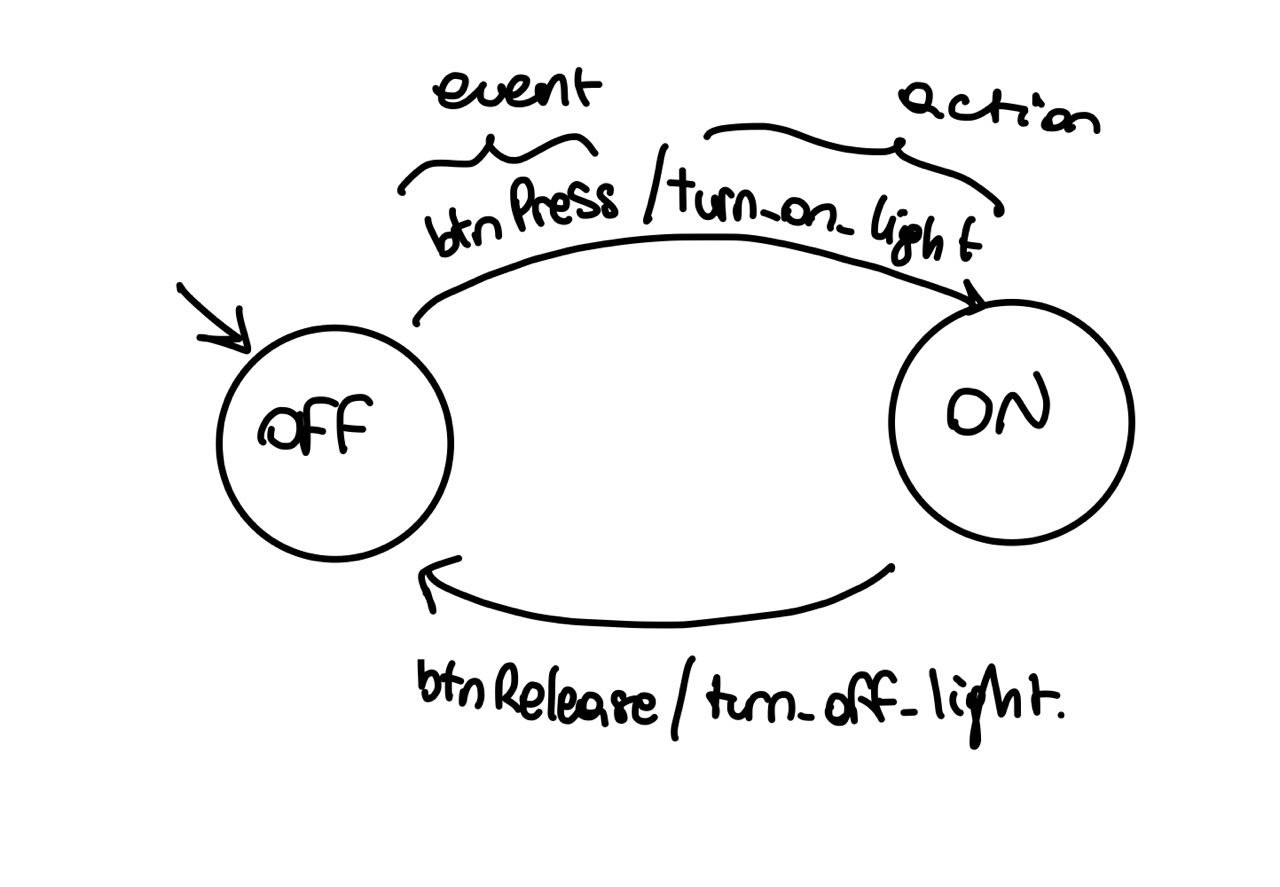 event
action
btnPress / turn_on_light
OFF
ON
btnRelease / turn_off_light.